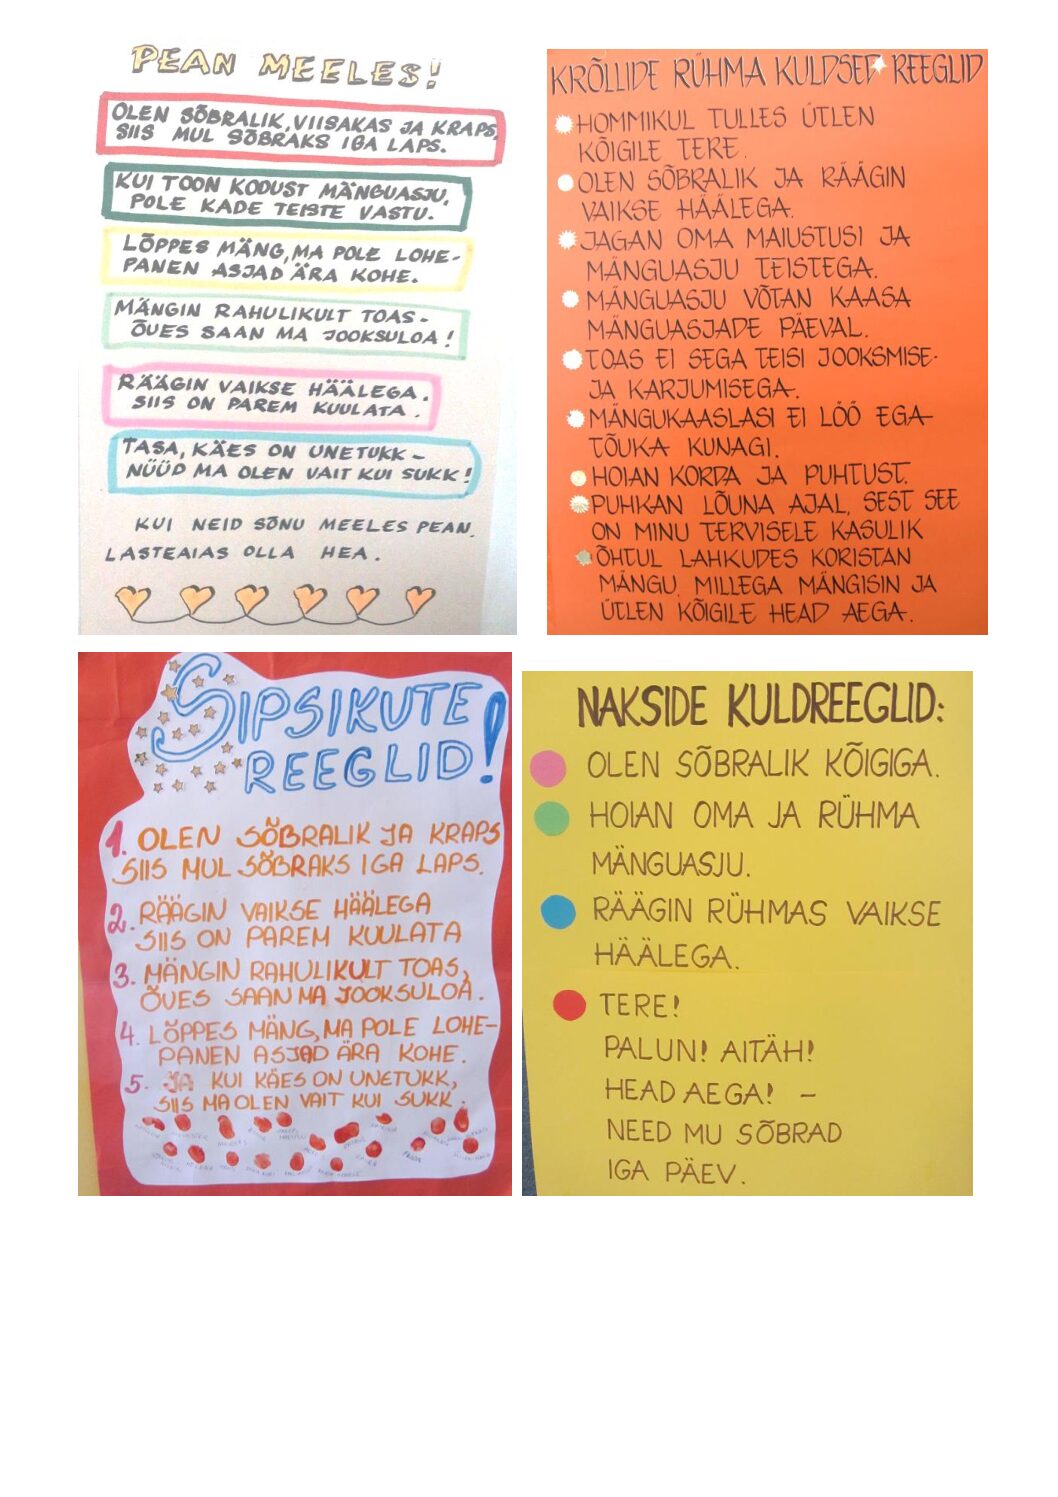 PEAN MEELES!
OLEN SÕBRALIK, VIISAKAS JA KRAPS,
SIIS MUL SÕBRAKS IGA LAPS.
KUI TOON KODUST MÄNGUASJU,
POLE KADE TEISTE VASTU.
LÕPPES MÄNG, MA POLE LOHE-
PANEN ASJAD ÄRA KOHE.
MÄNGIN RAHULIKULT TOAS-
ÕUES SAAN MA JOOKSULOA!
RÄÄGIN VAIKSE HÄÄLEGA.
SIIS ON PAREM KUULATA.
TASA, KÄES ON UNETUKK-
NÜÜD MA OLEN VAIT KUI SUKK!
KUI NEID SÕNU MEELES PEAN,
LASTEAIAS OLLA HEA.
KRÕLLIDE RÜHMA KULDSED REEGLID
HOMMIKUL TULLES ÜTLEN
KÕIGILE TERE.
OLEN SÕBRALIK JA RÄÄGIN
VAIKSE HÄÄLEGA.
JAGAN OMA MAIUSTUSI JA
MÄNGUASJU TEISTEGA.
MÄNGUASJU VÕTAN KAASA
MÄNGUASJADE PÄEVAL.
TOAS EI SEGA TEISI JOOKSMISE-
JA KARJUMISEGA.
MÄNGUKAASLASI EI LÖÖ EGA
TÕUKA KUNAGI.
HOIAN KORDA JA PUHTUST.
PUHKAN LÕUNA AJAL, SEST SEE
ON MINU TERVISELE KASULIK
ÕHTUL LAHKUDES KORISTAN
MÄNGU, MILLEGA MÄNGISIN JA
ÜTLEN KÕIGILE HEAD AEGA.
SIPSIKUTE
REEGLID!
1. OLEN SÕBRALIK JA KRAPS
SIIS MUL SÕBRAKS IGA LAPS.
2. RÄÄGIN VAIKSE HÄÄLEGA
SIIS ON PAREM KUULATA
3. MÄNGIN RAHULIKULT TOAS,
ÕUES SAAN MA JOOKSULOA.
4. LÕPPES MÄNG, MA POLE LOHE-
PANEN ASJAD ÄRA KOHE.
5. JA KUI KÄES ON UNETUKK,
SIIS MA OLEN VAIT KUI SUKK.
NAKSIDE KULDREEGLID:
OLEN SÕBRALIK KÕIGIGA.
HOIAN OMA JA RÜHMA
MÄNGUASJU.
RÄÄGIN RÜHMAS VAIKSE
HÄÄLEGA.
TERE!
PALUN! AITÄH!
HEAD AEGA! -
NEED MU SÕBRAD
IGA PÄEV.